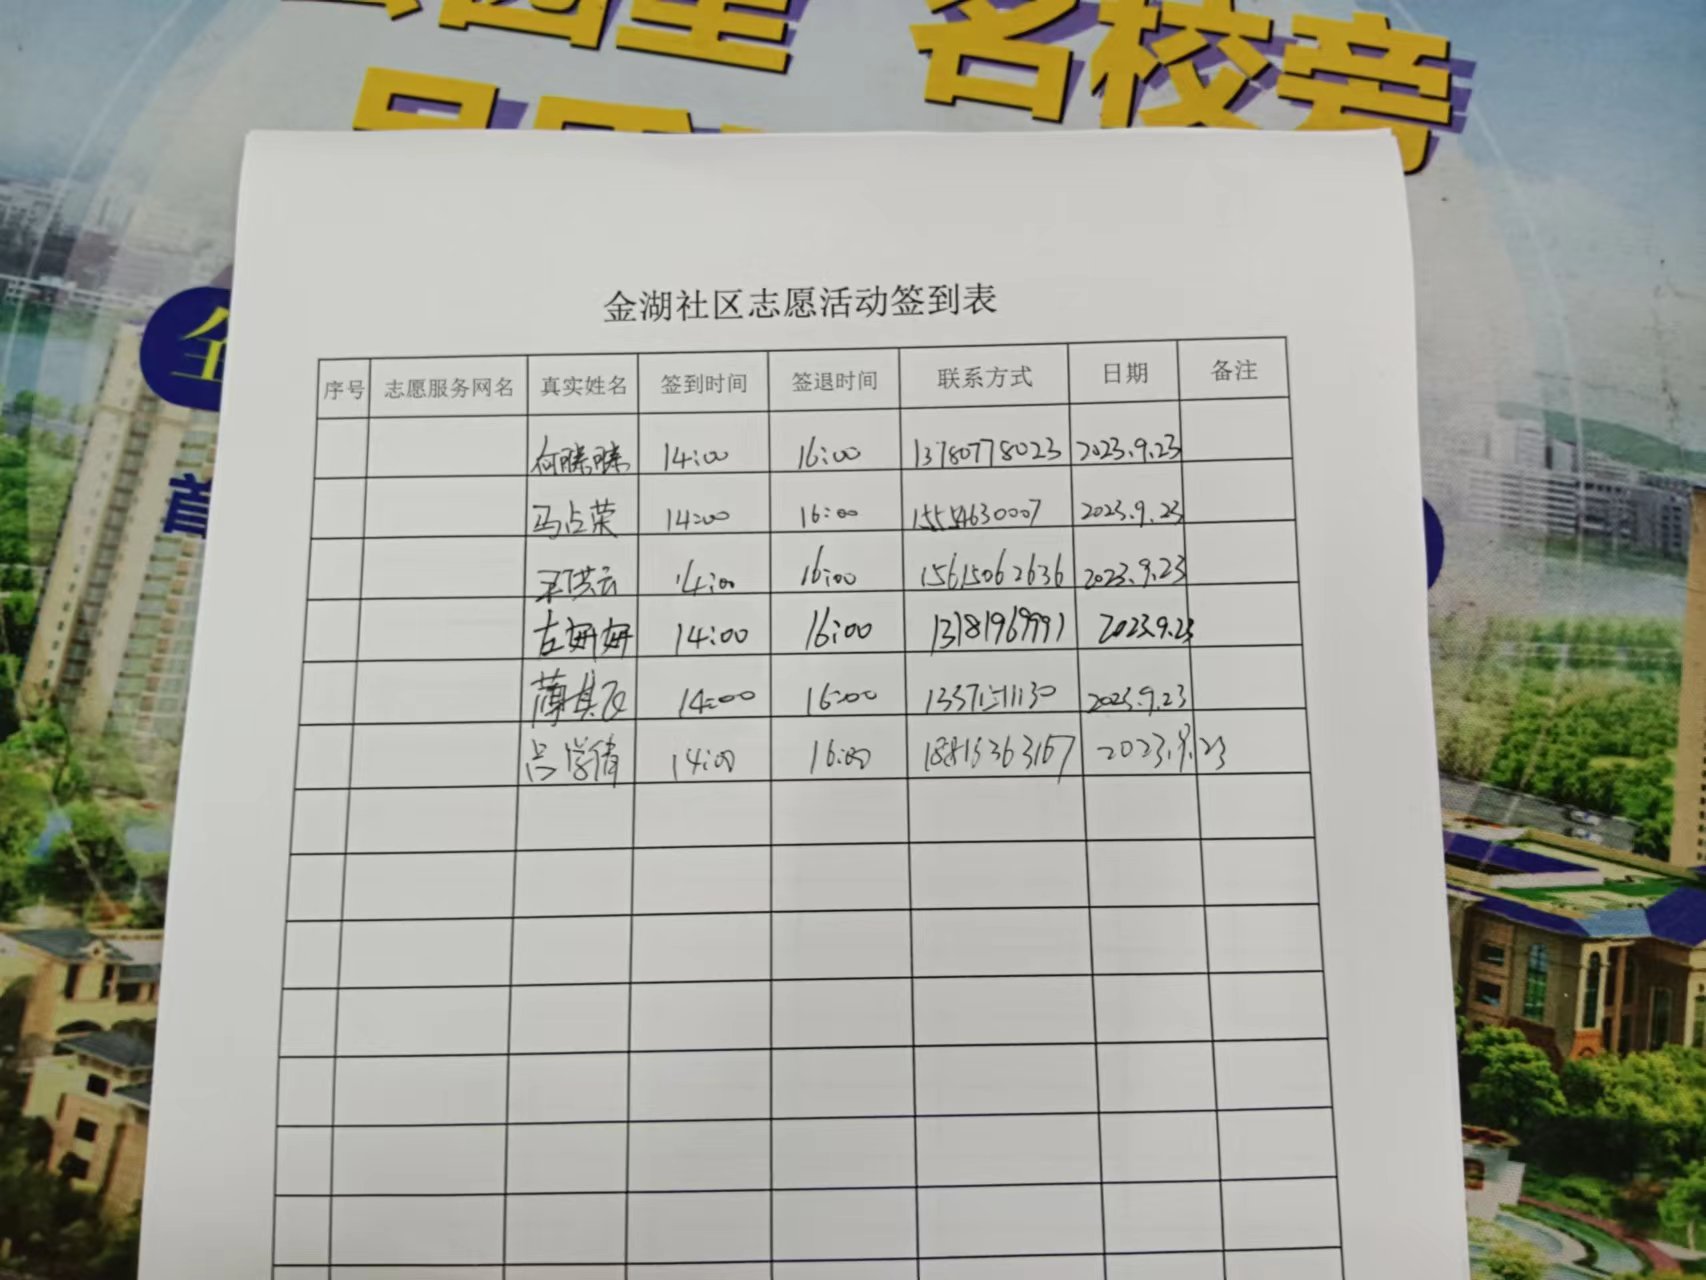 名校旁
金湖社区志愿活动签到表
序号 志愿服务网名 真实姓名 签到时间 签退时间 联系方式 日期 备注
何膝膝 14:00 16:00 13780778023 2023.9.23
马占荣 14:00 16:00 15554630007 2023.9.23
洪云 14:00 16:00 15615062636 2023.9.23
左妍妍 14:00 16:00 13181969991 2023.9.23
薄其 14:00 16:00 2023.9.23
吕学倩 14:00 16:00 18815363167 2023.9.23